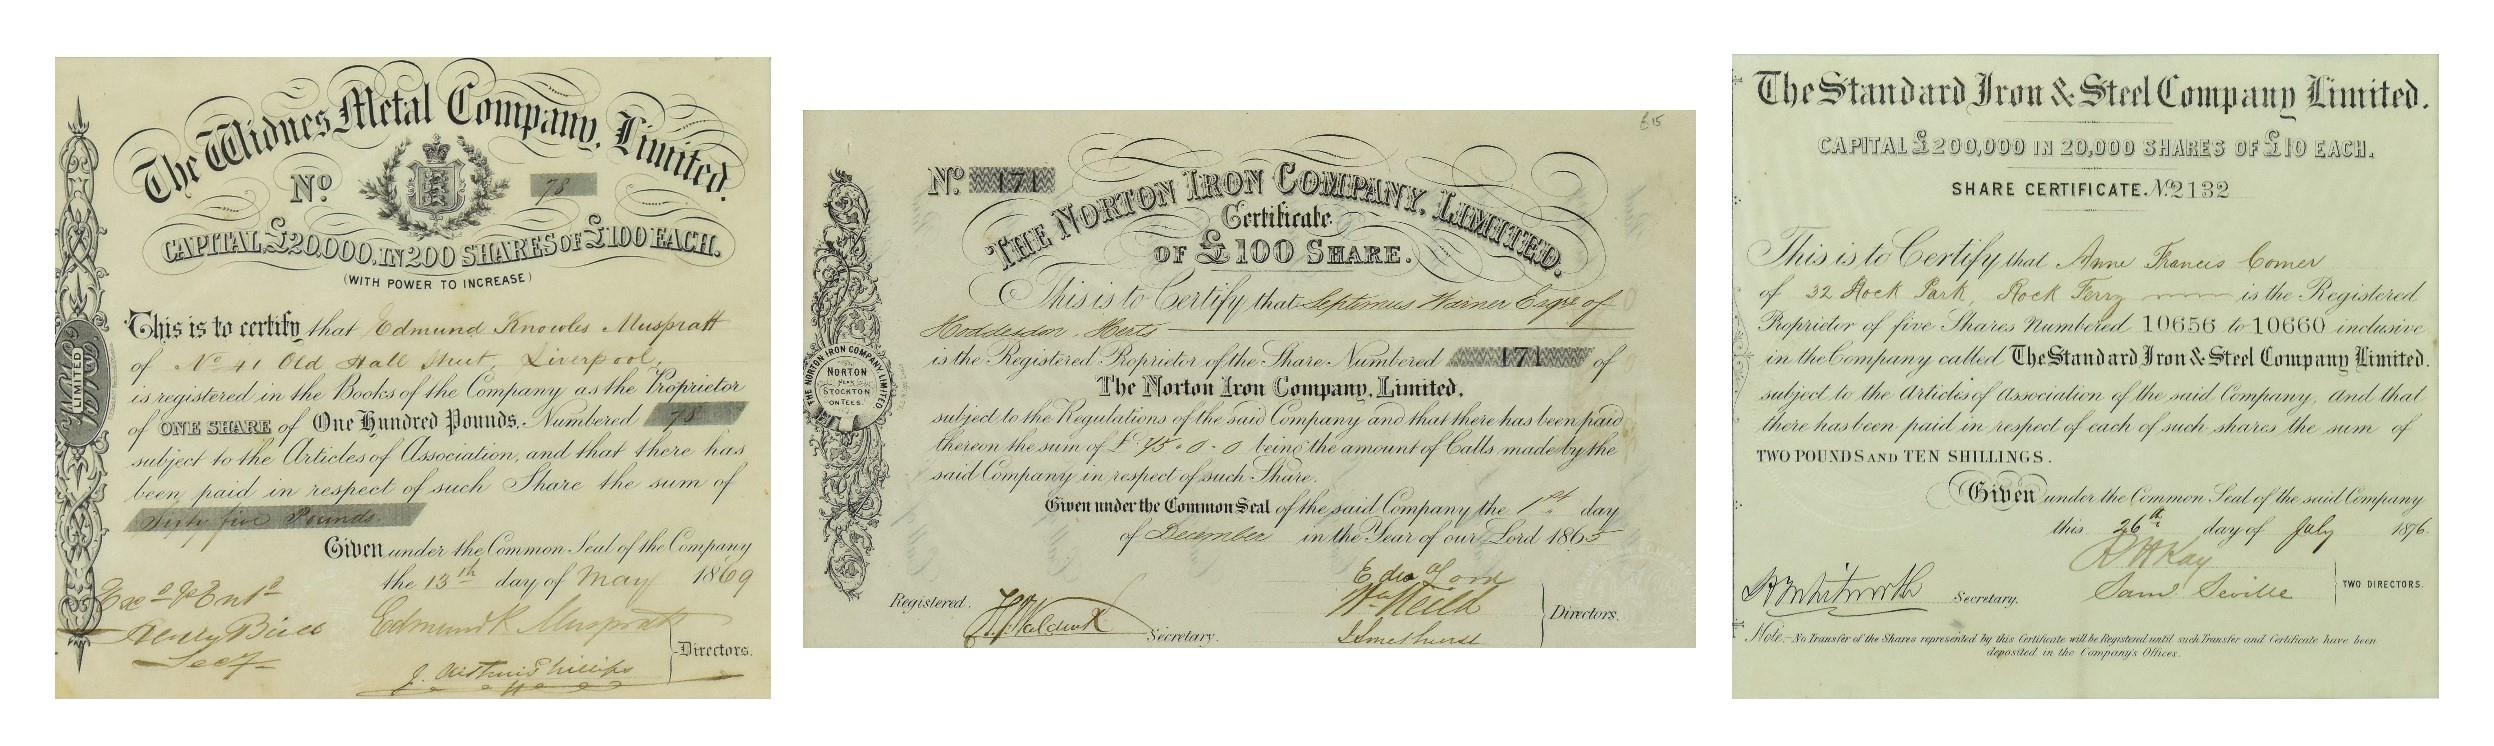 The Widnes Metal Company, Limited.
No. 78
CAPITAL £20,000. IN 200 SHARES OF £100 EACH.
(WITH POWER TO INCREASE)
This is to certify that Edmund Knowles Muspratt
of No 41 Old Hall Street, Liverpool,
is registered in the Books of the Company as the Proprietor
of ONE SHARE of One Hundred Pounds, Numbered 78
subject to the Articles of Association, and that there has
been paid in respect of such Share the sum of
Sixty five Pounds.
Given under the Common Seal of the Company
the 13th day of May 1869
Exd & Entd
Henry
Secy
Edmund K Muspratt
J. Phillips
Directors.
LIMITED
£15
No. 171
THE NORTON IRON COMPANY, LIMITED.
Certificate
OF £100 SHARE.
This is to Certify that Septimus Warner Esqre of
Hoddesdon, Herts
is the Registered Proprietor of the Share Numbered 171 of
The Norton Iron Company, Limited,
subject to the Regulations of the said Company and that there has been paid
thereon the sum of £ 45-0-0 being the amount of Calls made by the
said Company in respect of such Share.
Given under the Common Seal of the said Company the 1st day
of December in the Year of our Lord 1865
Registered.
Secretary.
Wm Neild
J Smethurst
Directors.
THE NORTON IRON COMPANY, LIMITED
NORTON
NEAR
STOCKTON
ON TEES.
The Standard Iron & Steel Company Limited.
CAPITAL £200,000 IN 20,000 SHARES OF £10 EACH.
SHARE CERTIFICATE. No. 2132
This is to Certify that Anne Francis Comer
of 32 Rock Park, Rock Ferry is the Registered
Proprietor of five Shares Numbered 10656 to 10660 inclusive
in the Company called The Standard Iron & Steel Company Limited.
subject to the Articles of Association of the said Company, and that
there has been paid in respect of each of such shares the sum of
TWO POUNDS AND TEN SHILLINGS.
Given under the Common Seal of the said Company
this 26th day of July 1876.
Kay
Whitworth Secretary.
Saml Seville
TWO DIRECTORS.
Note.- No Transfer of the Shares represented by this Certificate will be Registered until such Transfer and Certificate have been
deposited in the Company's Offices.